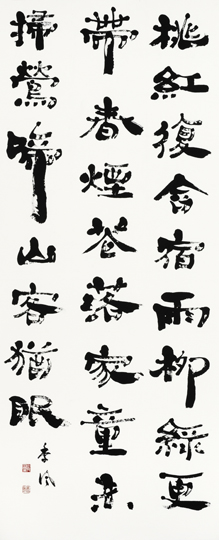 桃紅復含宿雨柳綠更
帶春煙花落家童未
掃鶯啼山客猶眠
季風